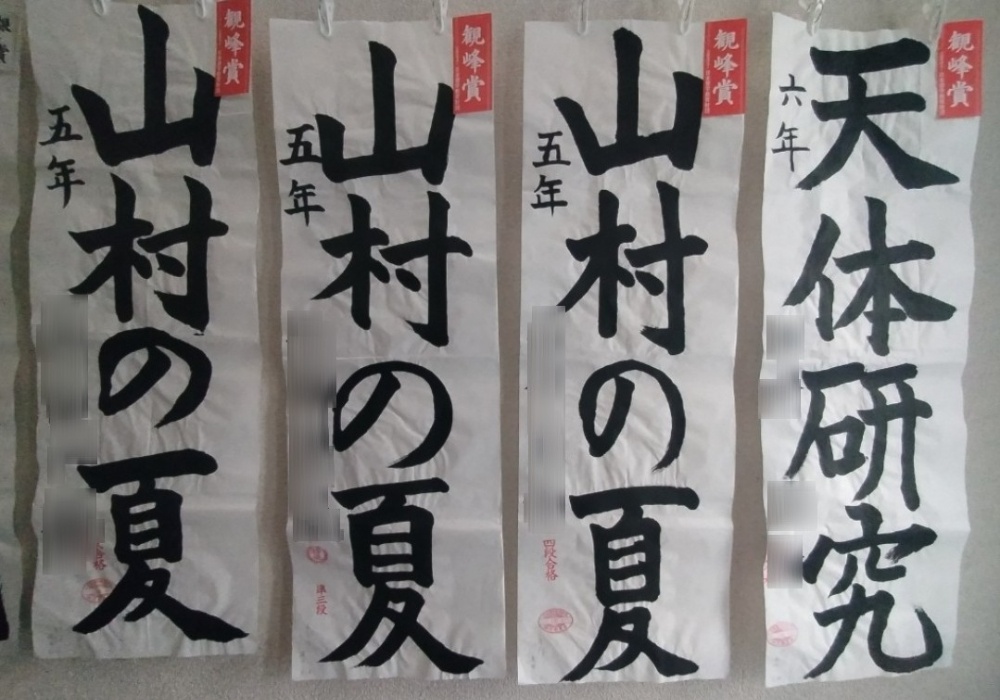 天体研究
六年
観峰賞
山村の夏
五年
観峰賞
四段合格
山村の夏
五年
観峰賞
準三段
山村の夏
五年
観峰賞
合格